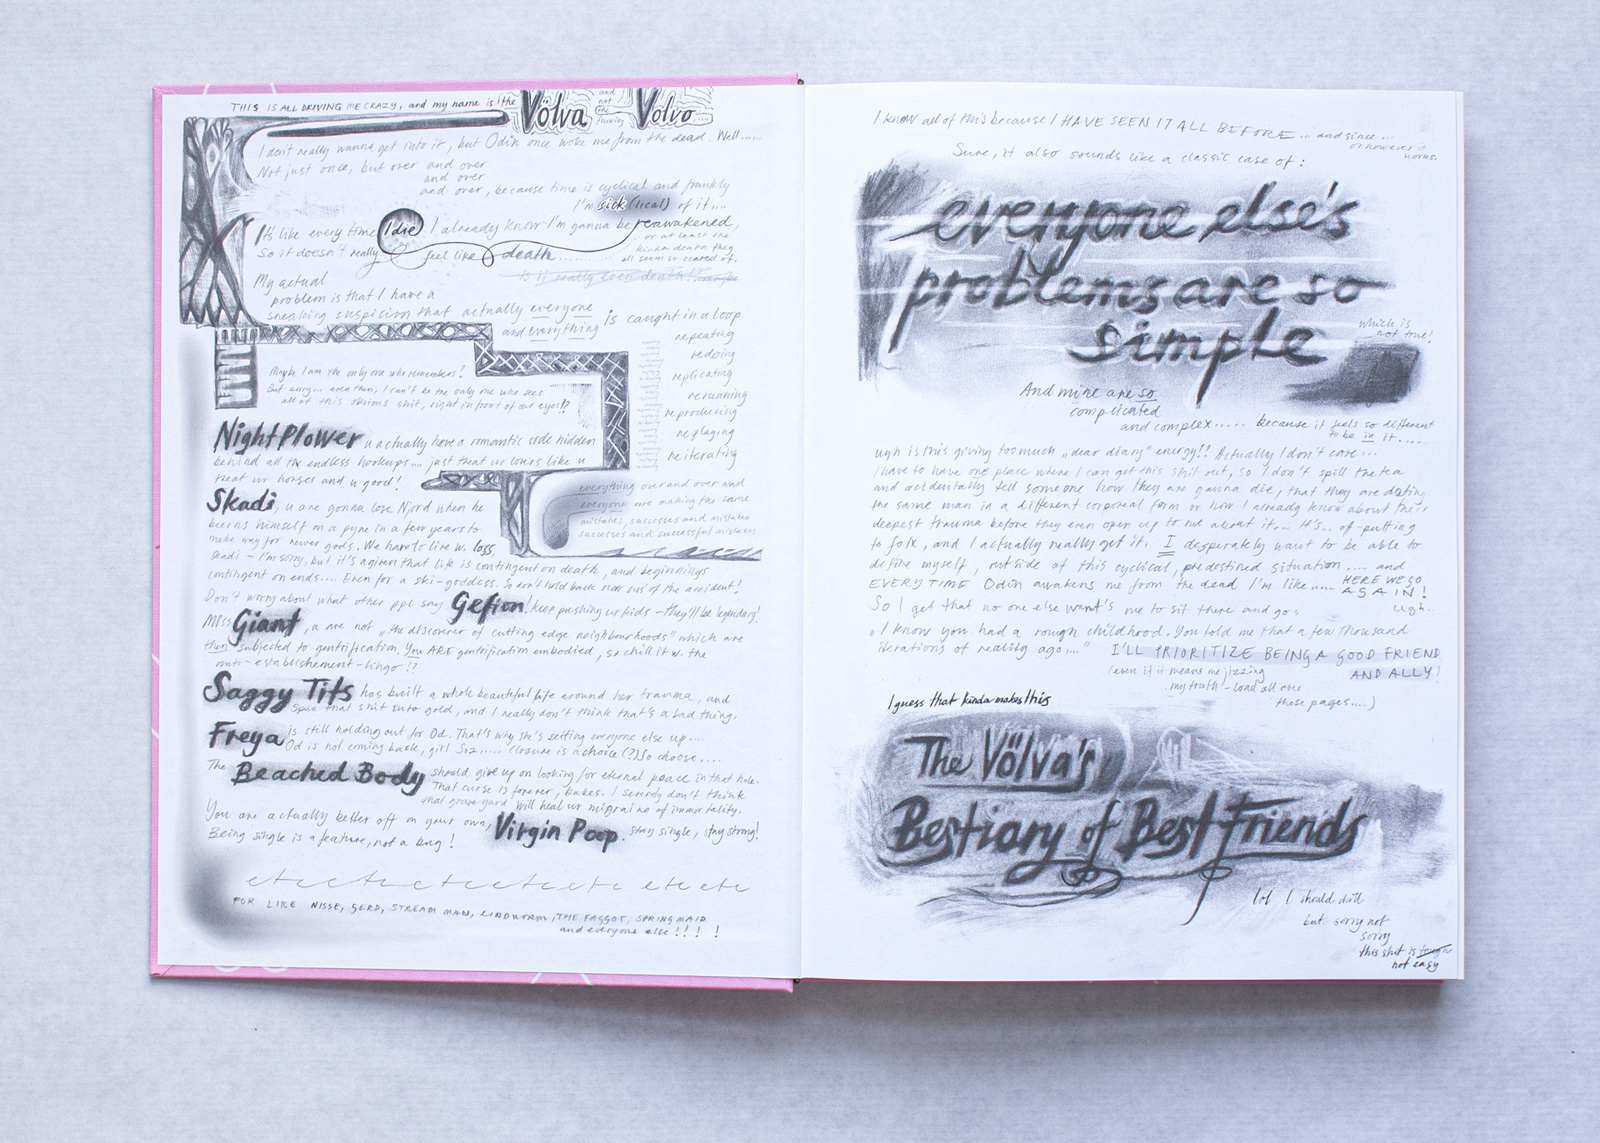 THIS IS ALL DRIVING ME CRAZY, and my name is the Völva and not the fucking Volvo....
I don't really wanna get into it, but Odin once woke me from the dead. Well.....
Not just once, but over and over
and over
and over, because time is cyclical and frankly
I'm sick (lical) of it....
It's like every time I die I already know I'm gonna be reawakened,
so it doesn't really feel like death.......... or at least the
kinda death they
all seem so scared of.
Is it really even death!? maybe
My actual
problem is that I have a
sneaking suspicion that actually everyone
and everything is caught in a loop
repeating
redoing
replicating
rerunning
reproducing
replaying
reiterating
Maybe I am the only one who remembers?
But sorry... even then, I can't be the only one who sees
all of this obvious shit, right in front of our eyes!?
NightPlower u actually have a romantic side hidden
behind all the endless hookups.... just treat ur lovers like u
treat ur horses and u good!
Skadi, u are gonna love Njord when he
burns himself on a pyre in a few years to
make way for newer gods. We have to live w. loss,
Skadi – I'm sorry, but it's a given that life is contingent on death, and beginnings
contingent on ends.... Even for a ski-goddess. So don't hold back now cus of the accident!
everything over and over and
everyone are making the same
mistakes, successes and mistaken
successes and successful mistakes
Don't worry about what other ppl say Gefion! keep pushing ur kids – they'll be legendary!
Miss Giant, u are not „the discoverer of cutting edge neighbourhoods" which are
then subjected to gentrification. You ARE gentrification embodied, so chill it w. the
anti-establishement-lingo!?
Saggy Tits has built a whole beautiful life around her trauma, and
spun that shit into gold, and I really don't think that's a bad thing.
Freya is still holding out for Od. That's why she's setting everyone else up....
Od is not coming back, girl. Soz..... Closure is a choice (?) So choose....
The Beached Body should give up on looking for eternal peace in that hole.
That curse is forever, babes. I severely don't think
that graveyard will heal ur migraine of immortality.
You are actually better off on your own, Virgin Poop. Stay single, stay strong!
Being single is a feature, not a bug!
etc etc etc etc etc etc etc
FOR LIKE NISSE, GERD, STREAM MAN, LINDWORM, THE FAGGOT, SPRING MAID
and everyone else!!! !
I know all of this because I HAVE SEEN IT ALL BEFORE... and since...
or however it
works
Sure, it also sounds like a classic case of:
everyone else's
problems are so
simple
which is
not true!
And mine are so
complicated
and complex..... because it feels so different
to be in it.....
ugh is this giving too much „dear diary" energy!? Actually I don't care...
I have to have one place where I can get this shit out, so I don't spill the tea
and accidentally tell someone how they are gonna die, that they are dating
the same man in a different corporeal form or how I already know about their
deepest trauma before they even open up to me about it... It's.. off-putting
to folx, and I actually really get it. I desperately want to be able to
define myself, outside of this cyclical, predestined situation..... and
EVERY TIME Odin awakens me from the dead I'm like..... HERE WE GO
AGAIN!
So I get that no one else want's me to sit there and go: ugh..
„I know you had a rough childhood. You told me that a few thousand
iterations of reality ago...." I'LL PRIORITIZE BEING A GOOD FRIEND
AND ALLY!
(even if it means me jizzing
my truth-load all over
these pages....)
I guess that kinda makes this
The Völva's
Bestiary of Best Friends
lol I should chill
but sorry not
sorry
this shit is tough
not easy